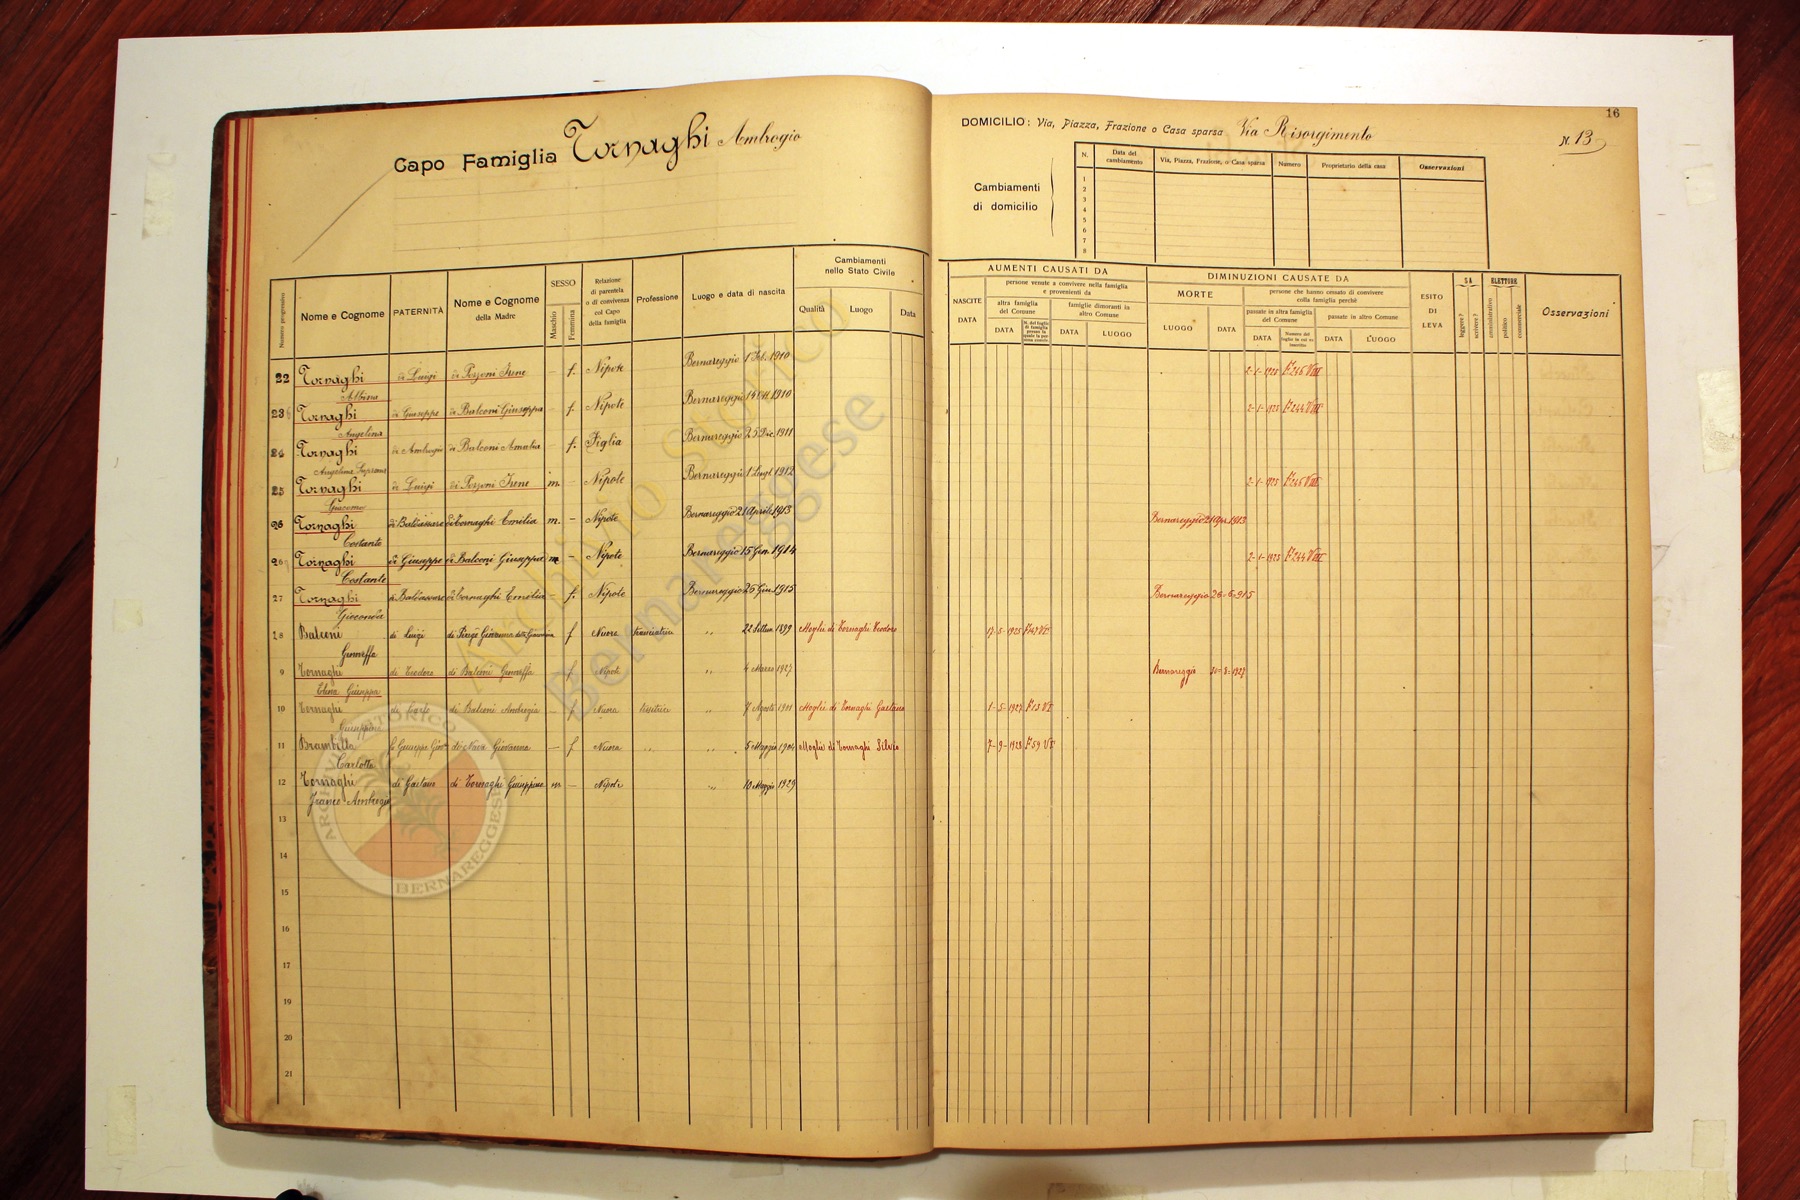 16
Capo Famiglia Tornaghi Ambrogio
DOMICILIO: Via, Piazza, Frazione o Casa sparsa Via Risorgimento N. 13
Cambiamenti di domicilio
N. Data del cambiamento Via, Piazza, Frazione, o Casa sparsa Numero Proprietario della casa Osservazioni
1
2
3
4
5
6
7
8
Numero progressivo Nome e Cognome PATERNITÀ Nome e Cognome della Madre SESSO Maschio Femmina Relazione di parentela o di convivenza col Capo della famiglia Professione Luogo e data di nascita Cambiamenti nello Stato Civile Qualità Luogo Data
NASCITE DATA AUMENTI CAUSATI DA persone venute a convivere nella famiglia e provenienti da altra famiglia del Comune DATA famiglie dimoranti in altro Comune DATA LUOGO
DIMINUZIONI CAUSATE DA MORTE LUOGO DATA persone che hanno cessato di convivere colla famiglia perchè passate in altra famiglia del Comune DATA Numero del foglio in cui es inscritto passate in altro Comune DATA LUOGO
ESITO DI LEVA SA leggere? scrivere? ELETTORE amministrativo politico commerciale Osservazioni
22 Tornaghi Albina di Luigi di Pozzoni Irene - f. Nipote Bernareggio 1 Feb. 1910 2-1-1925 F° 245 VIII
23 Tornaghi Angelina di Giuseppe di Balconi Giuseppa - f. Nipote Bernareggio 14 Ott. 1910 2-1-1925 F° 244 VIII
24 Tornaghi Angelina di Ambrogio di Balconi Amalia - f. Figlia Bernareggio 25 Dic. 1911
25 Tornaghi Giacomo di Luigi di Pozzoni Irene m. - Nipote Bernareggio 1 Lugl. 1912 2-1-1925 F° 245 VIII
26 Tornaghi Costante di Baldassare di Tornaghi Emilia m. - Nipote Bernareggio 21 Aprile 1913 Bernareggio 21 Apr. 1913
26 Tornaghi Costante di Giuseppe di Balconi Giuseppa m - Nipote Bernareggio 15 Gen. 1914 2-1-1925 F° 244 VIII
27 Tornaghi Gioconda di Baldassare di Tornaghi Emilia - f. Nipote Bernareggio 26 Giu. 1915 Bernareggio 26-6-915
28 Balconi Genoeffa di Luigi f Nuora 22 1899 Moglie di Tornaghi Teodoro 17-5-1925
9 Tornaghi Elena Giuseppa di Teodoro di Balconi Genoeffa f Nipote " 4 Marzo 1927 Bernareggio
10 Tornaghi Giuseppina di Carlo di Balconi Ambrogia - f Nuora tessitrice " 7 Agosto 1901 Moglie di Tornaghi Gaetano 1-5-1927 F° 13 VI
11 Brambilla Carlotta di Nava Giovanna - f Nuora " " 5 Maggio 1904 Moglie di Tornaghi Silvio 7-9-1928 F° 59 VI
12 Tornaghi Franco Ambrogio di Gaetano di Tornaghi Giuseppina m - Nipote " 10 Maggio 1929
13
14
15
16
17
19
20
21
Archivio Storico
Bernareggese
ARCHIVIO STORICO
BERNAREGGESE